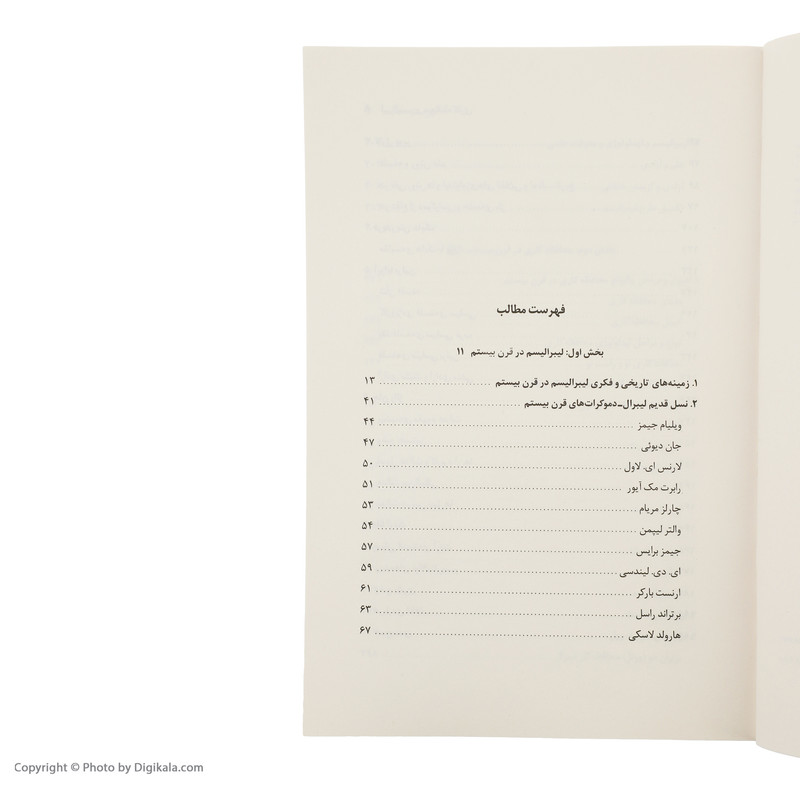 فهرست مطالب
بخش اول: لیبرالیسم در قرن بیستم ۱۱
۱. زمینه‌های تاریخی و فکری لیبرالیسم در قرن بیستم ........ ۱۳
۲. نسل قدیم لیبرال‌ـ‌دموکرات‌های قرن بیستم ........ ۴۱
ویلیام جیمز ........ ۴۴
جان دیوئی ........ ۴۷
لارنس ای. لاول ........ ۵۰
رابرت مک آیور ........ ۵۱
چارلز مریام ........ ۵۳
والتر لیپمن ........ ۵۴
جیمز برایس ........ ۵۷
ای. دی. لیندسی ........ ۵۹
ارنست بارکر ........ ۶۱
برتراند راسل ........ ۶۳
هارولد لاسکی ........ ۶۷
Copyright © Photo by Digikala.com